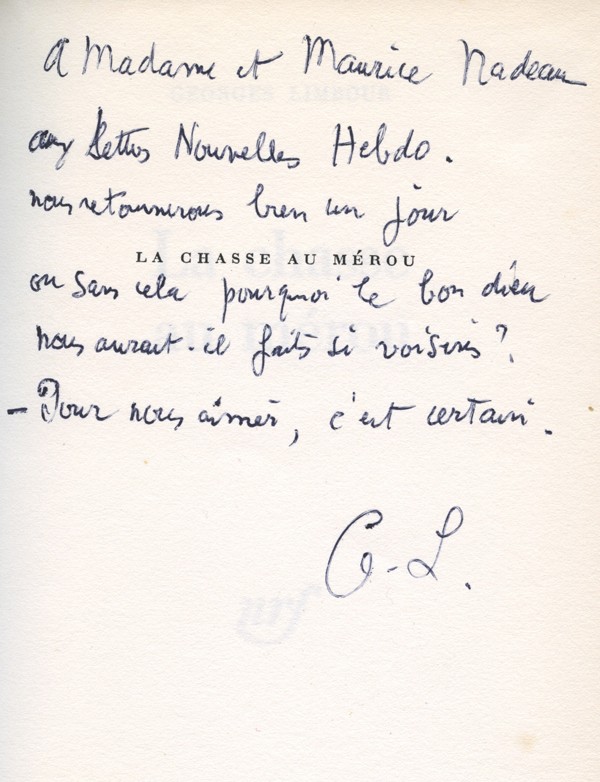 A Madame et Maurice Nadeau
aux Lettres Nouvelles Hebdo.
nous retournerons bien un jour
LA CHASSE AU MÉROU
ou sans cela pourquoi le bon dieu
nous aurait-il faits si voisins ?
– Pour nous aimer, c'est certain.
G. L.
GEORGES LIMBOUR
La chasse
au mérou
nrf